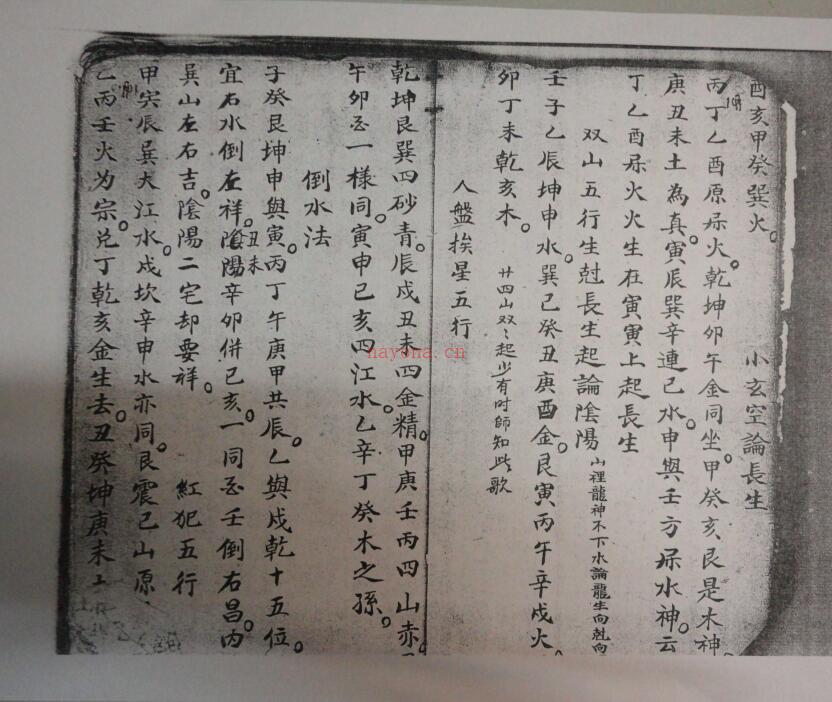 酉亥甲癸巽火。　小玄空論長生
丙丁乙酉原屬火。乾坤卯午金同坐。甲癸亥艮是木神。
庚丑未土為真。寅辰巽辛連巳水。申與壬方屬水神。云
丁乙酉屬火火生在寅寅上起長生
双山五行生尅長生起論陰陽 山裡龍神不下水論龍生向尅向
壬子乙辰坤申水。巽巳癸丑庚酉金。艮寅丙午辛戌火。
卯丁未乾亥木。 廿四山双々起少有时師知此歌
人盤挨星五行
乾坤艮巽四砂青。辰戌丑未四金精。甲庚壬丙四山赤。
午卯酉一樣同。寅申巳亥四江水。乙辛丁癸木之孫。
倒水法
子癸艮坤申與寅。丙丁午庚甲共辰。乙與戌乾十五位。
宜右水倒左祥。丑未陰陽辛卯併巳亥。一同酉壬倒右昌。内
巽山左右吉。陰陽二宅却要祥。　紅犯五行
甲寅辰巽大江水。戌坎辛申水亦同。艮震巳山原
乙丙壬火为宗。兑丁乾亥金生去。丑癸坤庚未土
nayona.cn